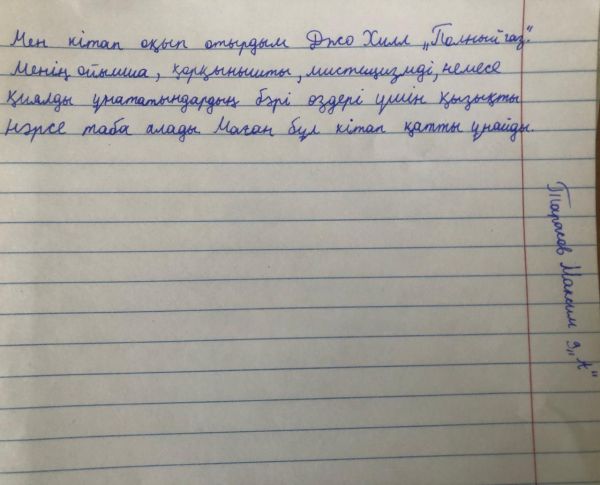 Мен кітап оқып отырдым Джо Хилл „Полный газ".
Менің ойымша, қорқынышты, мистицизмді, немесе
қиялды ұнататындардың бәрі өздері үшін қызықты
нәрсе таба алады Маған бұл кітап қатты ұнайды.
Тарасов Максим 9 „А"